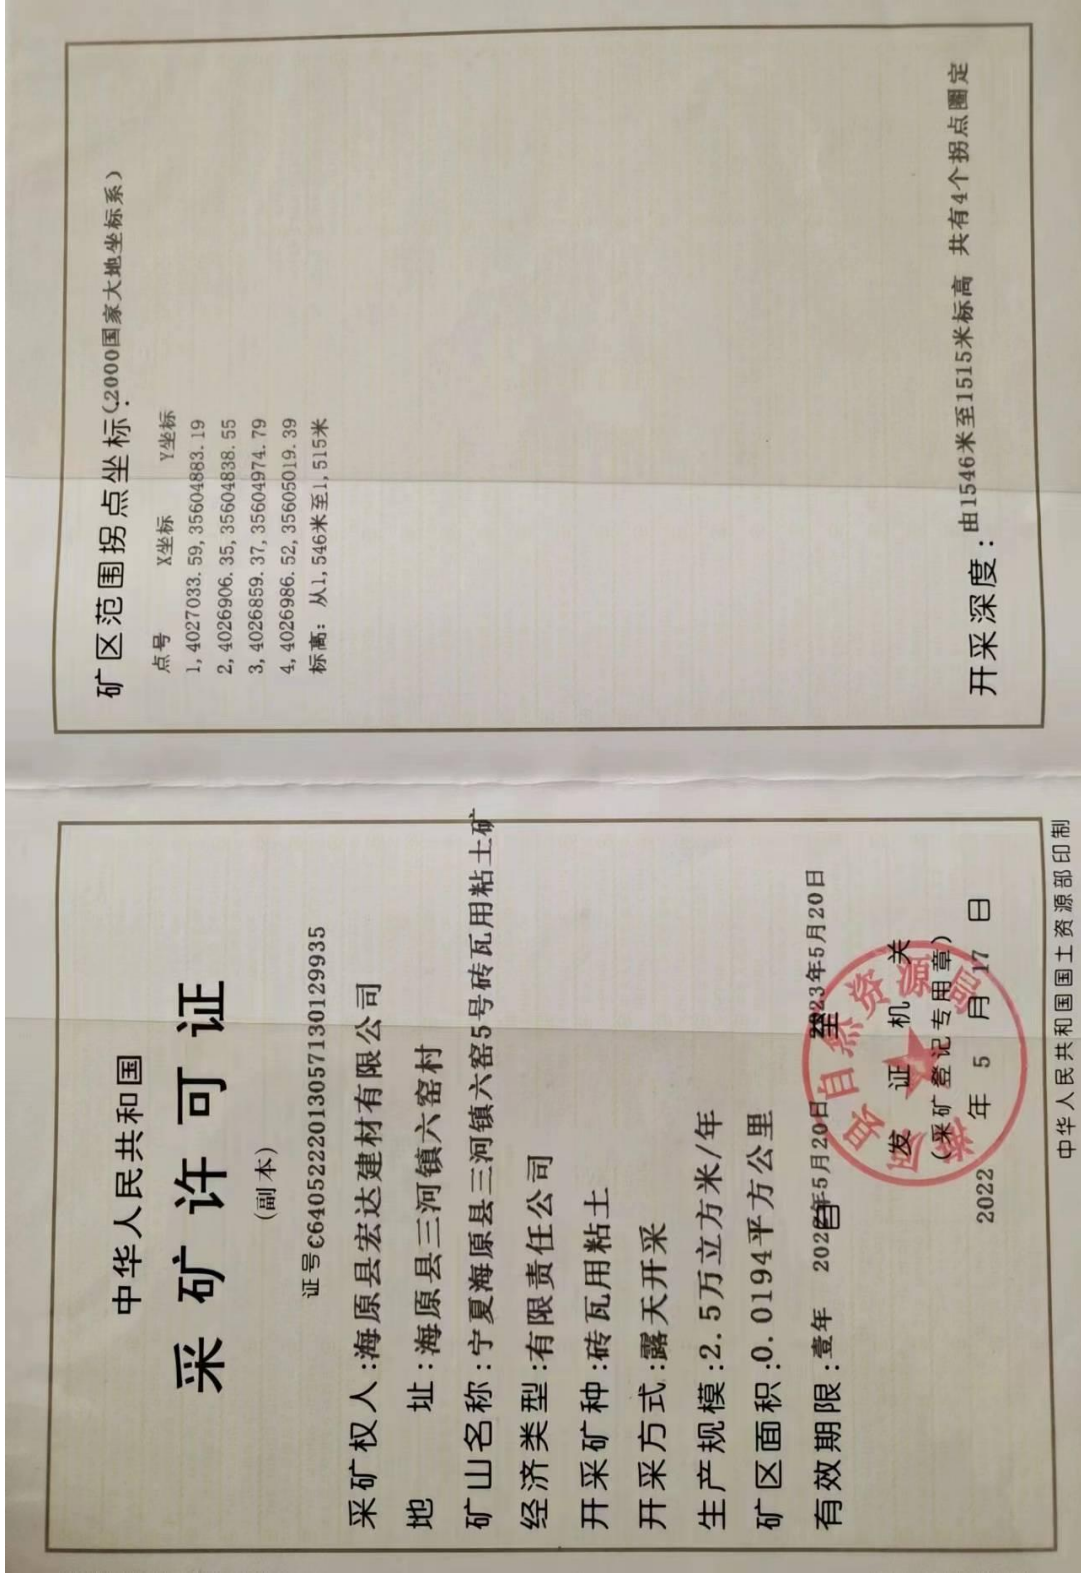 中华人民共和国
采矿许可证
(副本)
证号C6405222013057130129935
采矿权人:海原县宏达建材有限公司
地 址:海原县三河镇六窑村
矿山名称:宁夏海原县三河镇六窑5号砖瓦用粘土矿
经济类型:有限责任公司
开采矿种:砖瓦用粘土
开采方式:露天开采
生产规模:2.5万立方米/年
矿区面积:0.0194平方公里
有效期限:壹年 自2022年5月20日至2023年5月20日
发证机关
(采矿登记专用章)
2022年5月17日
海原县自然资源局
中华人民共和国国土资源部印制
矿区范围拐点坐标:(2000国家大地坐标系)
点号 X坐标 Y坐标
1,4027033.59,35604883.19
2,4026906.35,35604838.55
3,4026859.37,35604974.79
4,4026986.52,35605019.39
标高:从1,546米至1,515米
开采深度:由1546米至1515米标高 共有4个拐点圈定